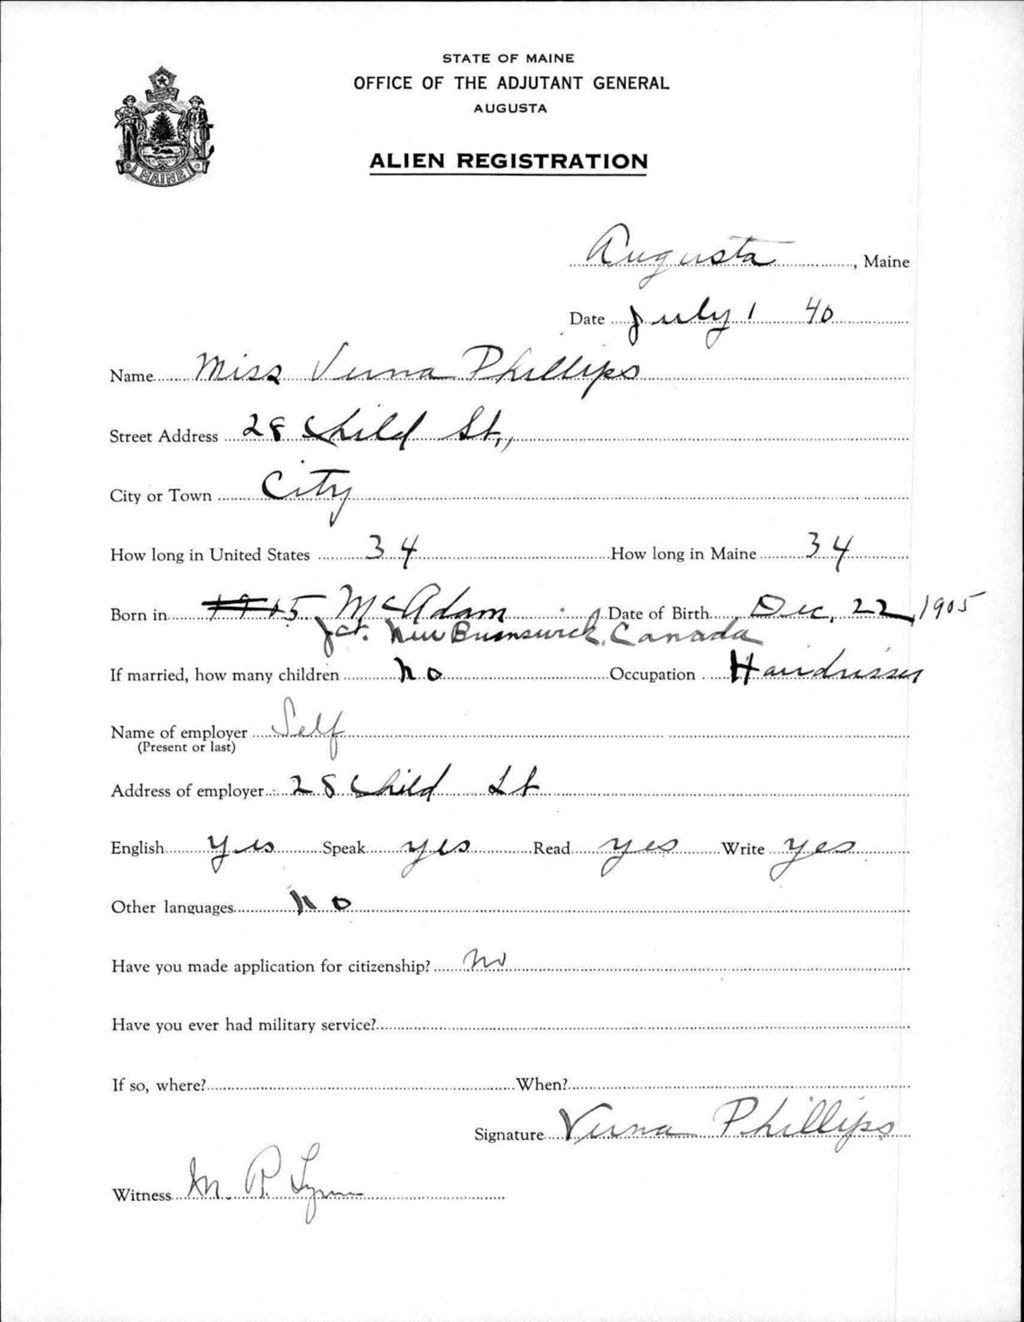 STATE OF MAINE
OFFICE OF THE ADJUTANT GENERAL
AUGUSTA
ALIEN REGISTRATION
MAINE
Augusta, Maine
Date July 1 40
Name Miss Verna Phillips
Street Address 28 Child St.,
City or Town City
How long in United States 34 How long in Maine 34
Born in 1905 McAdam Date of Birth Dec. 22, 1905
Jct. New Brunswick, Canada
If married, how many children No Occupation Hairdresser
Name of employer Self
(Present or last)
Address of employer 28 Child St
English yes Speak yes Read yes Write yes
Other languages No
Have you made application for citizenship? No
Have you ever had military service?
If so, where? When?
Signature Verna Phillips
Witness M. P. Lynn